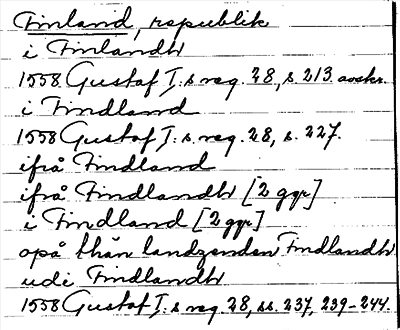 Finland, republik
i Finlandh
1558 Gustaf I:s reg. 28, s. 213 avskr.
i Findland
1558 Gustaf I:s reg. 28, s. 227.
ifrå Findland
ifrå Findlandh [2 ggr]
i Findland [2 ggr]
opå thän landzenden Findlandh
udi Findlandh
1558 Gustaf I:s reg. 28, ss. 237, 239-244.